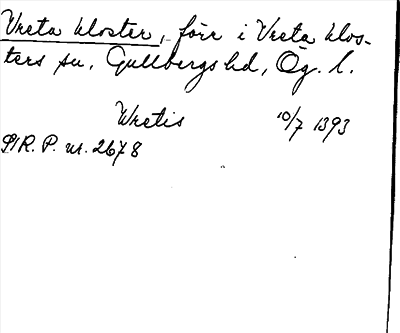 Vreta kloster, förr i Vreta klos-
ters sn, Gullbergs hd, Ög. l.
Wretis 10/7 1393
SRAP. nr. 2678